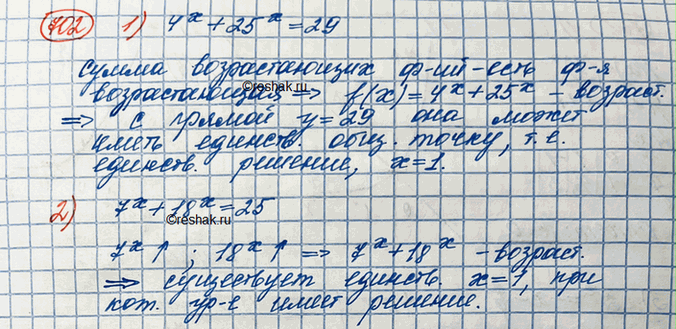 702 1) 4^x + 25^x = 29
Сумма возрастающих ф-ий - есть ф-я
©reshak.ru
возрастающая => f(x) = 4^x + 25^x - возраст.
=> с прямой y = 29 она может
иметь единств. общ. точку, т.е.
единств. решение, x = 1.
2) 7^x + 18^x = 25
©reshak.ru
7^x ↑ ; 18^x ↑ => 7^x + 18^x - возраст.
=> существует единств. x = 1, при
кот. ур-е имеет решение.